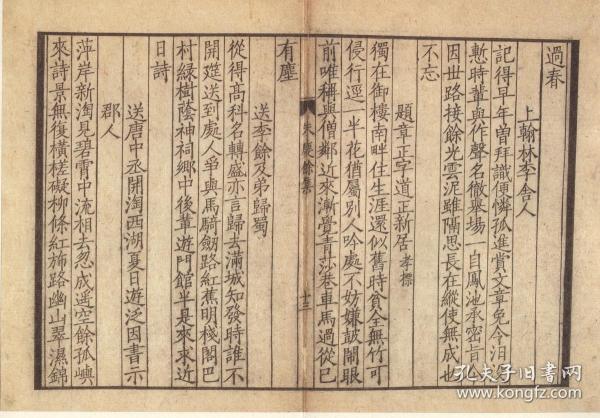 過春
上翰林李舍人
記得早年曽拜識便憐孤進賞文章免令汨没
慙時輩與作聲名徹舉塲一自鳳池承密旨
因世路接餘光雲泥雖隔思長在縱使無成也
不忘
題章正字道正新居孝標
獨在御樓南畔住生涯還似舊時貧全無竹可
侵行逕一半花猶屬別人吟處不妨嫌鼓鬧眼
前唯稱與僧鄰近來漸覺青莎巷車馬過從巳
有塵
朱慶餘集
十三
送李餘及第歸蜀
從得髙科名轉盛亦言歸去滿城知發時誰不
開筵送到處人爭與馬騎劔路紅蕉明棧閣巴
村緑樹蔭神祠鄉中後輩遊門館半是來求近
日詩
送唐中丞開淘西湖夏日遊泛因書示
郡人
萍岸新淘見碧霄中流相去忽成遥空餘孤嶼
來詩景無復橫槎礙柳條紅斾路幽山翠濕錦
孔夫子旧书网
www.kongfz.com